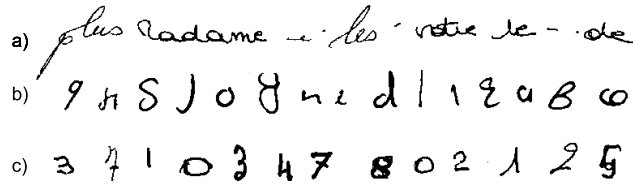 a) plus Madame les votre le de
b) 9 n S J o Y n e d l 1 q a B
c) 3 7 1 0 3 4 7 8 0 2 1 2 5